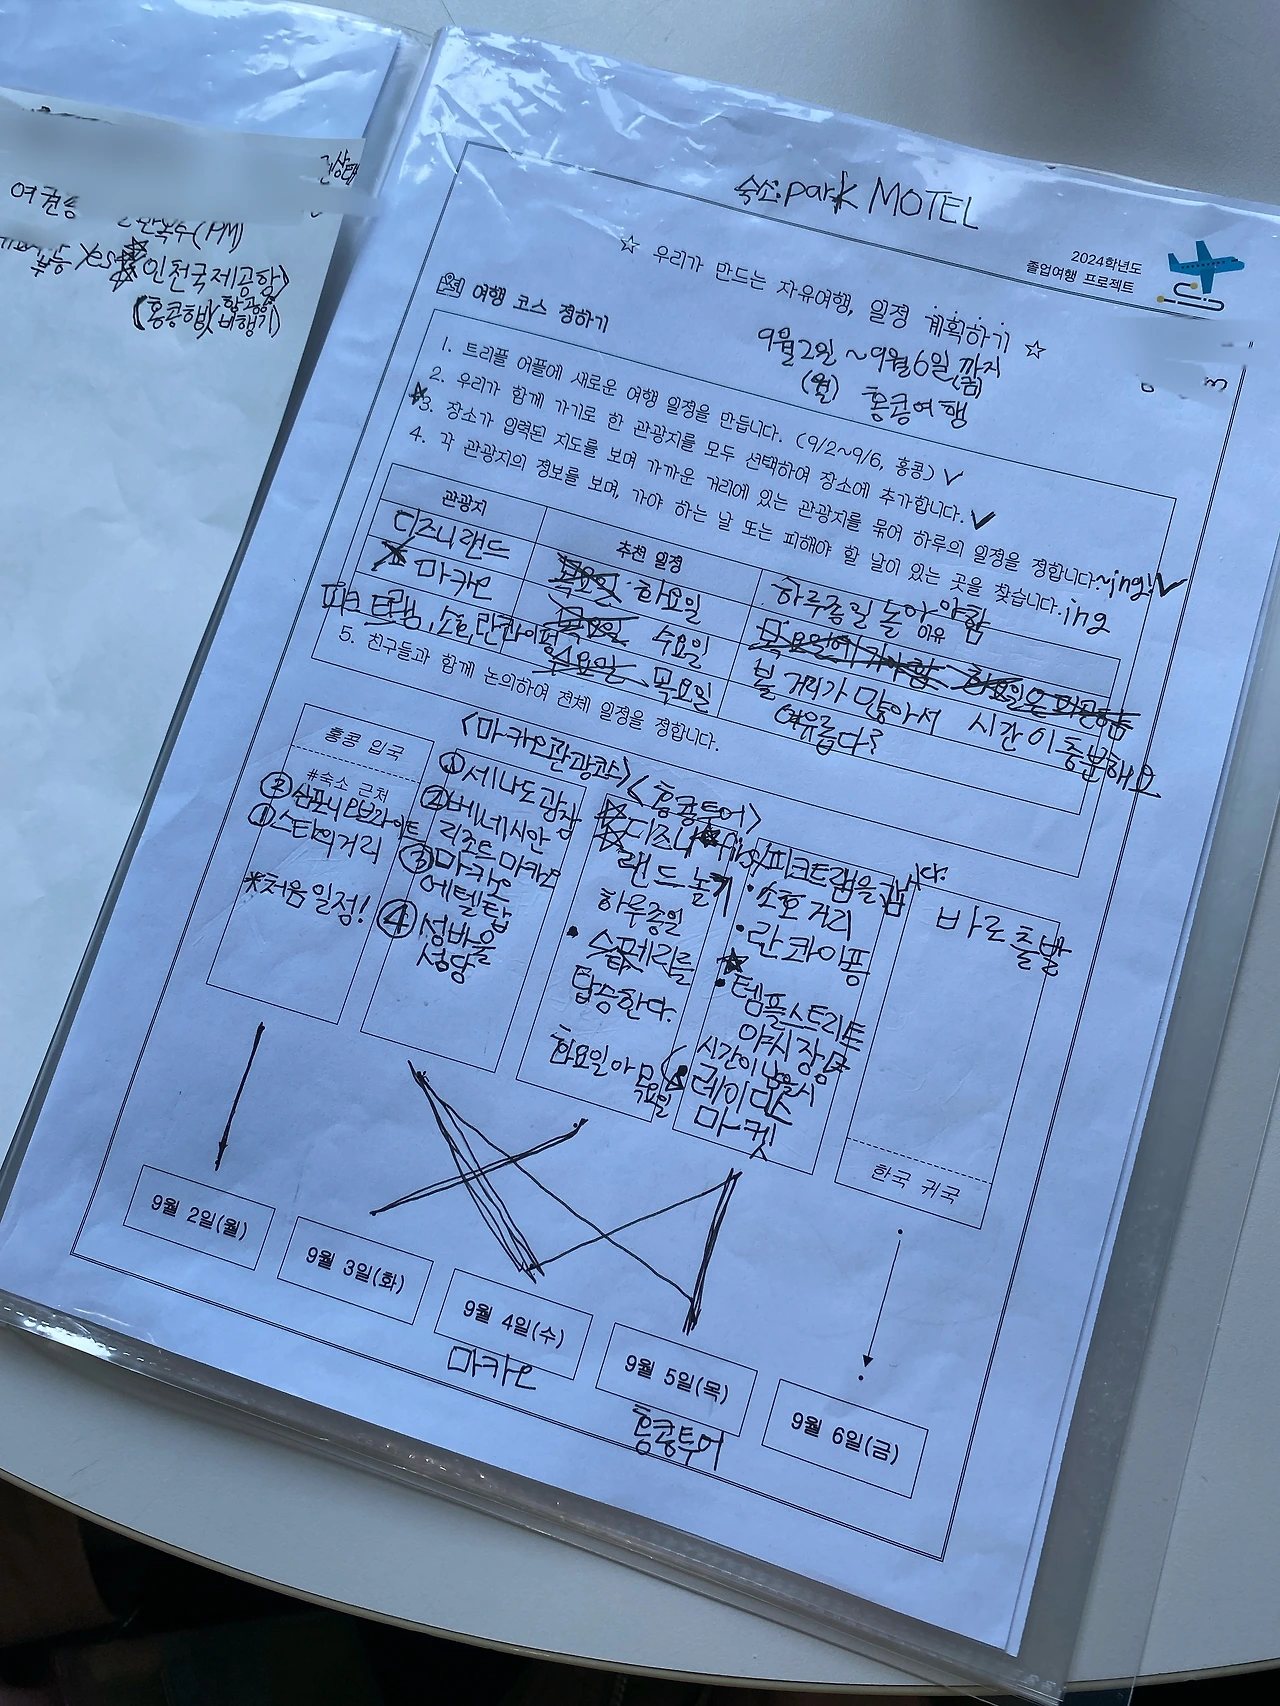 여권
(PM)
인천국제공항>
(홍콩행
비행기)
숙소: park MOTEL
2024학년도
졸업여행 프로젝트
☆ 우리가 만드는 자유여행, 일정 계획하기 ☆
9월2일 ~9월6일까지
(월) (금)
홍콩여행
여행 코스 정하기
1. 트리플 어플에 새로운 여행 일정을 만듭니다. (9/2~9/6, 홍콩) ✓
2. 우리가 함께 가기로 한 관광지를 모두 선택하여 장소에 추가합니다. ✓
☆3. 장소가 입력된 지도를 보며 가까운 거리에 있는 관광지를 묶어 하루의 일정을 정합니다.~ing! ✓
4. 각 관광지의 정보를 보며, 가야 하는 날 또는 피해야 할 날이 있는 곳을 찾습니다.ing
관광지 추천 일정 이유
디즈니랜드 목요일 화요일 하루종일 돌아야함
마카오 목요일 수요일 목요일에 가야함.
피크트램, 소호, 란콰이펑 수요일 목요일 볼 거리가 많아서 시간이 충분해요
여유롭다?
5. 친구들과 함께 논의하여 전체 일정을 정합니다.
<마카오관광코스> <홍콩투어>
홍콩 입국
#숙소 근처
①스타의거리
*처음 일정!
①세나도광장
②베네시안
리조트마카오
③마카오
에펠탑
④성바울
성당
디즈니
랜드 놀기
하루종일
페리를
탑승한다.
피크트램을
소호거리
·란콰이퐁
·템플스트리트
야시장
레이디스
마켓
바로출발
한국 귀국
9월 2일(월)
9월 3일(화)
9월 4일(수)
마카오
9월 5일(목)
홍콩투어
9월 6일(금)